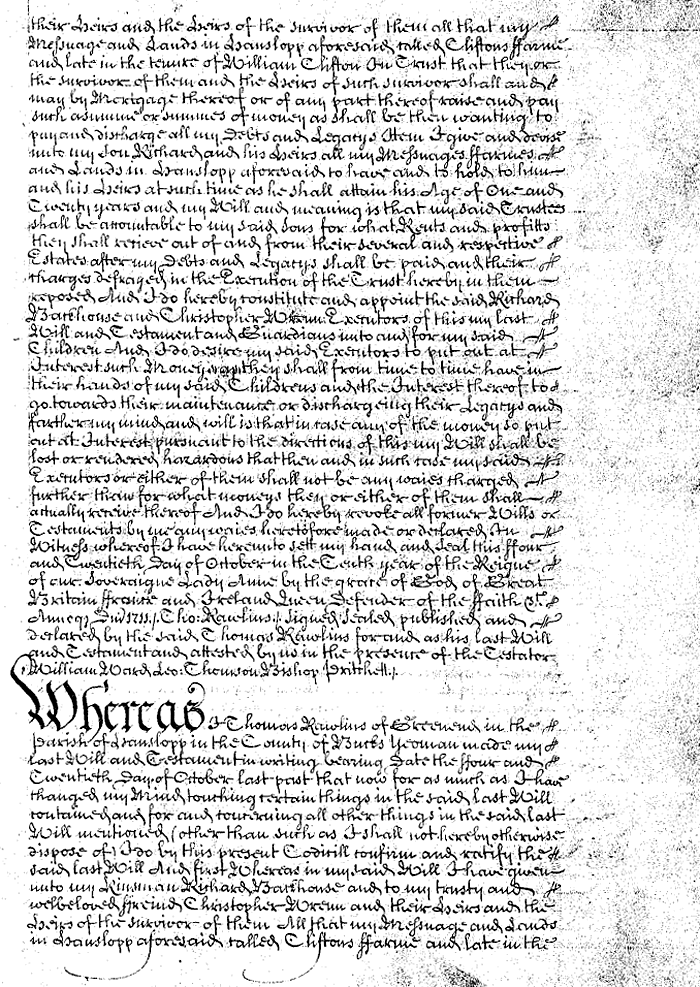 their Heirs and the Heirs of the survivor of them all that my
Messuage and Lands in Hanslopp aforesaid called Cliftons ffarme
and late in the tenure of William Clifton In Trust that they or
the survivor of them and the Heirs of such survivor shall and
may by Mortgage thereof or of any part thereof raise and pay
such a summe or summes of money as shall be then wanting to
pay and discharge all my Debts and Legacys Item I give and devise
unto my Son Richard and his Heirs all my Messuages ffarmes
and Lands in Hanslopp aforesaid to have and to hold to him
and his Heirs at such time as he shall attain his Age of One and
Twenty years and my Will and meaning is that my said Trustees
shall be accountable to my said Sons for what Rents and profitts
they shall recieve out of and from their several and respective
Estates after my Debts and Legacys shall be paid and their
charges defrayed in the Execution of the Trust hereby in them
reposed And I do hereby constitute and appoint the said Richard
Backhouse and Christopher Wrenn Executors of this my last
Will and Testament and Guardians unto and for my said
Children And I do desire my said Executors to put out at
Interest such Moneys as they shall from time to time have in
their hands of my said Childrens and the Interest thereof to
go towards their maintenance or dischargeing their Legacys and
farther my mind and will is that in case any of the money so put
out at Interest pursuant to the directions of this my Will shall be
lost or rendered hazardous that then and in such case my said
Executors or either of them shall not be any waies charged
further than for what moneys they or either of them shall
actually receive thereof And I do hereby revoke all former Wills or
Testaments by me any waies heretofore made or declared In
Witness whereof I have hereunto sett my hand and seal this ffour
and Twentieth Day of October in the Tenth year of the Reigne
of our Soveraigne Lady Anne by the grace of God of Great
Britain ffrance and Ireland Queen Defender of the ffaith &c.
Annoq Dni 1711. Tho: Rawlins. Signed sealed published and
declared by the said Thomas Rawlins for and as his last Will
and Testament and attested by us in the presence of the Testator
William Ward Leo: Thomson Bishop Pritchett.
Whereas I Thomas Rawlins of Greenend in the
Parish of Hanslopp in the County of Bucks Yeoman made my
last Will and Testament in writing bearing Date the ffour and
Twentieth Day of October last past that now for as much as I have
changed my Mind touching certain things in the said last Will
contained and for and concerning all other things in the said last
Will mentioned (other than such as I shall not hereby otherwise
dispose of) I do by this present Codicill confirm and ratify the
said last Will And first Whereas in my said Will I have given
unto my Kinsman Richard Backhouse and to my trusty and
welbeloved ffreind Christopher Wrenn and their Heirs and the
Heirs of the survivor of them All that my Messuage and Lands
in Hanslopp aforesaid called Cliftons ffarme and late in the